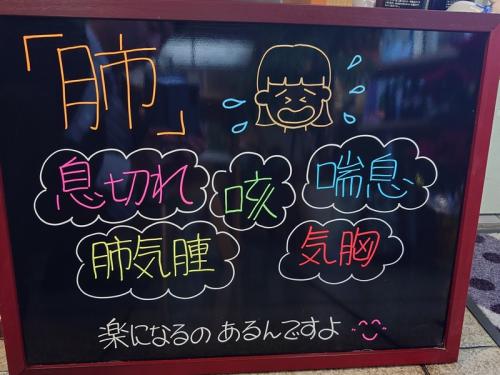 「肺」
息切れ 咳 喘息
肺気腫 気胸
楽になるの あるんですよ